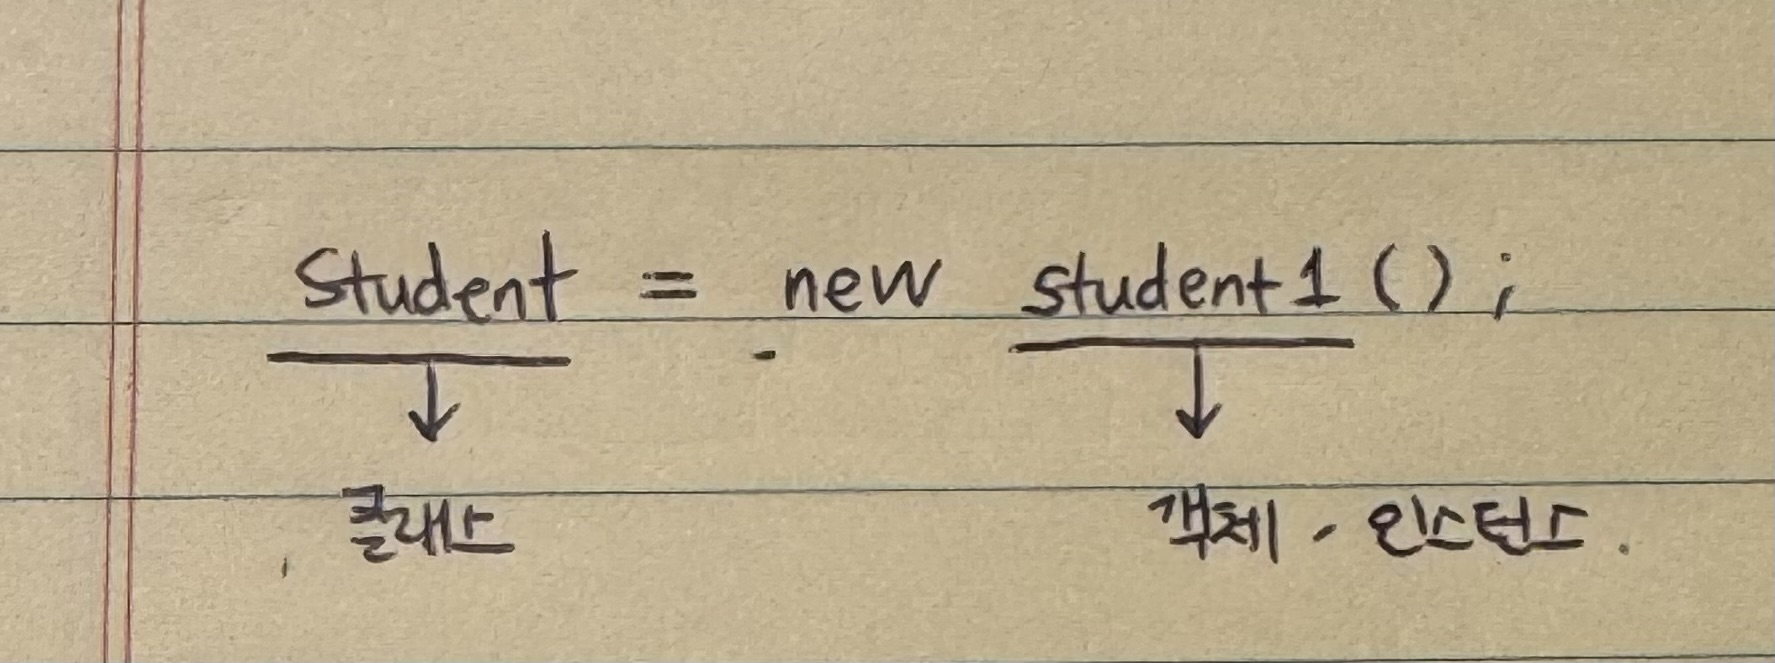 Student = new student1();
클래스 객체, 인스턴스.